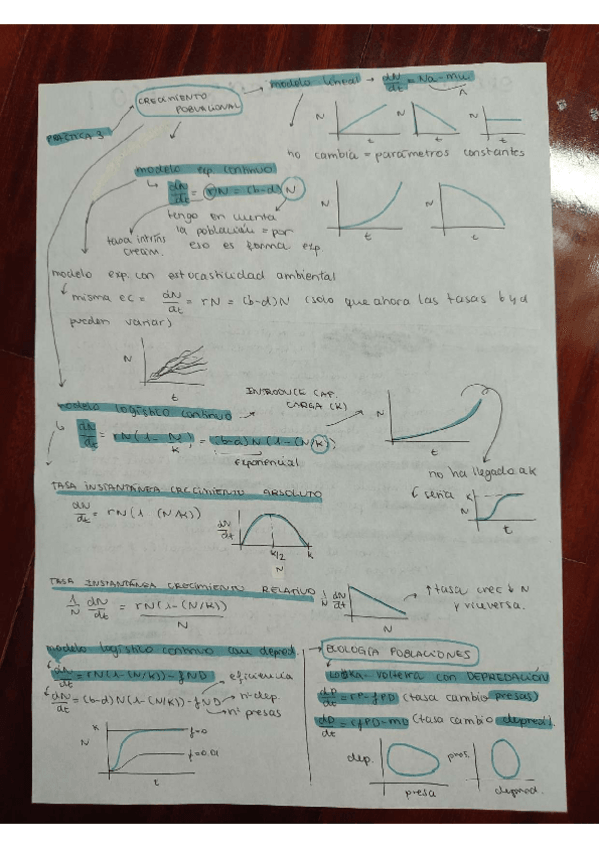 modelo lineal → dN/dt = Na - mu
CRECIMIENTO
POBLACIONAL
PRÁCTICA 3
N t N t N t
no cambia = parámetros constantes
modelo exp continuo
dN/dt = rN = (b-d) N
tengo en cuenta
la población = por
eso es forma exp
tasa intríns
crecim.
N t t
modelo exp. con estocasticidad ambiental
misma ec = dN/dt = rN = (b-d)N (solo que ahora las tasas b y d
pueden variar)
N t
modelo logístico continuo
INTRODUCE CAP.
CARGA (K)
dN/dt = rN(1 - N/K) = (b-d)N(1-(N/K))
exponencial
N t
no ha llegado a K
sería K N t
TASA INSTANTÁNEA CRECIMIENTO ABSOLUTO
dN/dt = rN(1 (N/K))
dN/dt K/2 K N
TASA INSTANTÁNEA CRECIMIENTO RELATIVO
1/N dN/dt = rN(1-(N/K))/N
1/N dN/dt N
↑tasa crec ↓ N
y viceversa.
modelo logístico continuo con depred.
dN/dt = rN(1-(N/K)) - fND
eficiencia
dN/dt = (b-d)N(1-(N/K)) - fND
nº dep.
nº presas
K N t f=0 f=0,01
ECOLOGÍA POBLACIONES
Lotka-Volterra con DEPREDACIÓN
dP/dt = rP - fPD (tasa cambio presas)
dD/dt = cfPD - mD (tasa cambio depred.)
dep. presa
pres. depred.